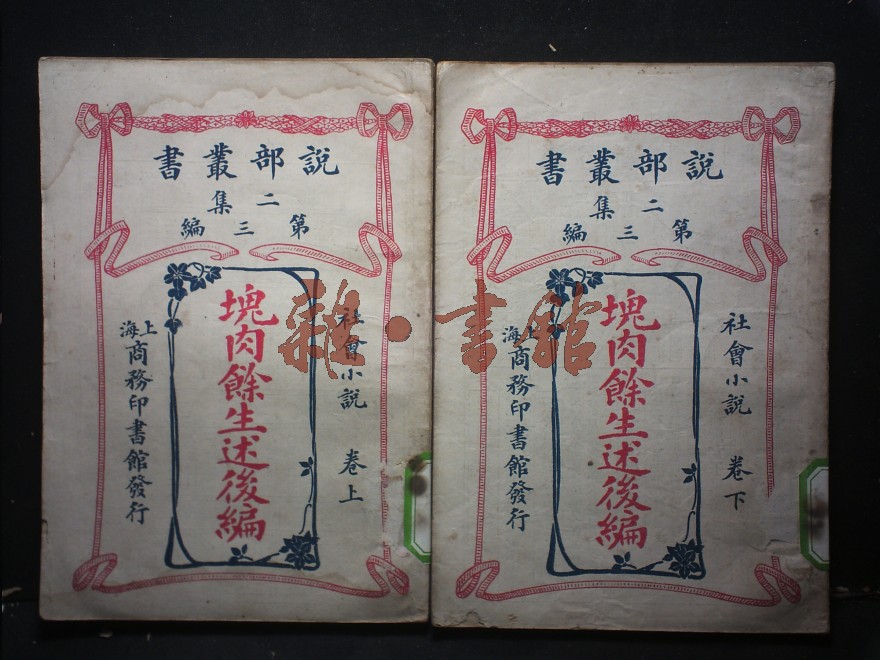 說部叢書
二集
第三編
社會小說 卷上
塊肉餘生述後編
上海商務印書館發行
說部叢書
二集
第三編
社會小說 卷下
塊肉餘生述後編
上海商務印書館發行
雜·書館